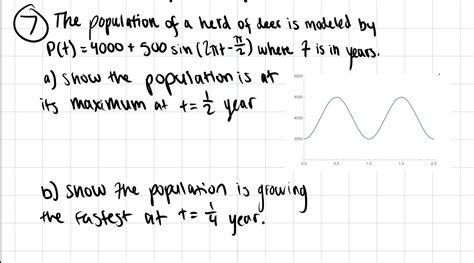 7 The population of a herd of deer is modeled by
P(t) = 4000 + 500 sin (2πt - π/2) where t is in years.
a) Show the population is at
its maximum at t = 1/2 year
b) Show the population is growing
the fastest at t = 1/4 year.
0.0 0.5 1.0 1.5 2.0